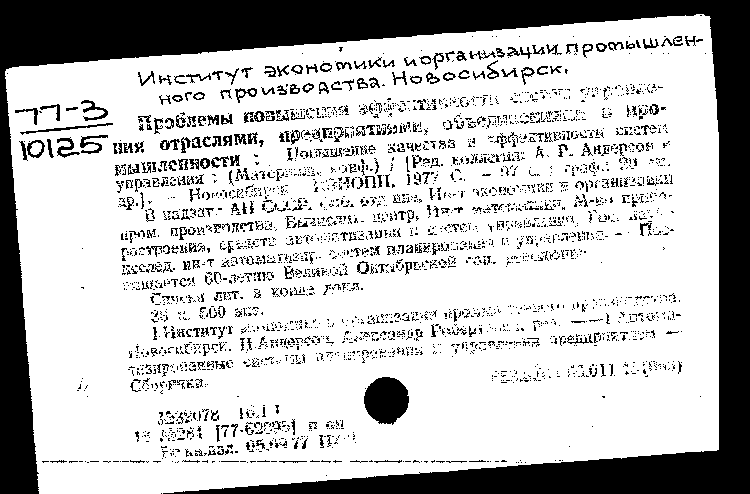 Институт экономики и организации промышлен-
ного производства. Новосибирск.
77-3
10125
Проблемы повышения эффективности систем управле-
ния отраслями, предприятиями, объединениями в про-
мышленности : Повышение качества и эффективности систем
управления : (Материалы конф.) / [Ред. коллегия: А. Г. Андерсон и
др.]. - Новосибирск : ИЭИОПП, 1977 С. - 97 с. : граф.; 20 см.
В надзаг.: АН СССР, Сиб. отд-ние, Ин-т экономики и организации
пром. производства, Вычисл. центр, Ин-т математики, М-во прибо-
ростроения, средств автоматизации и систем управления,
исслед. ин-т автоматизир. систем планирования и управления. - Пос-
вящается 60-летию Великой Октябрьской соц. революции
Списки лит. в конце докл.
500 экз.
1. Институт экономики и организации промышленного производства.
Новосибирск. II. Андерсон, Александр ред. — 1. Автома-
тизированные системы планирования и управления предприятием —
Сборники.
3232078
[77-62095] п
05.09.77